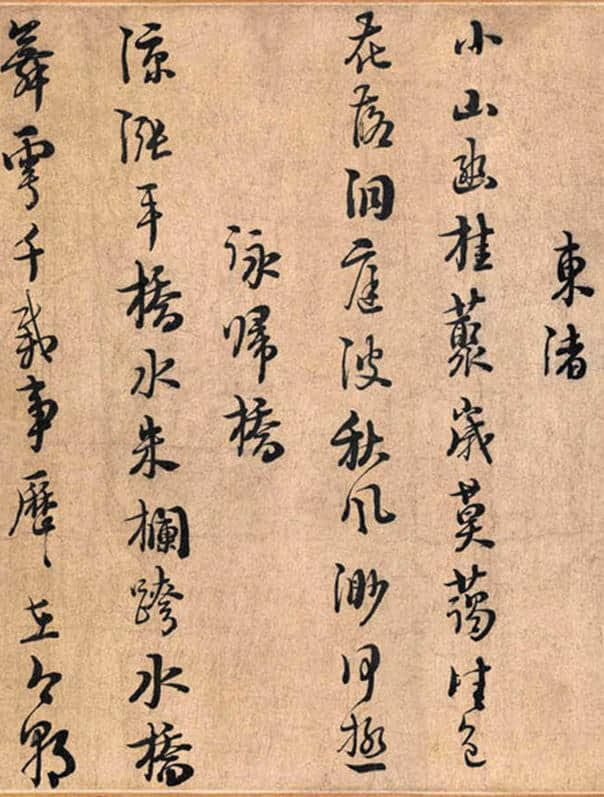 東渚
小山幽桂叢歲莫藹佳色
花落洞庭波秋風渺何極
詠歸橋
涼漲平橋水朱欄跨水橋
舞雩千載事歷〻在今朝